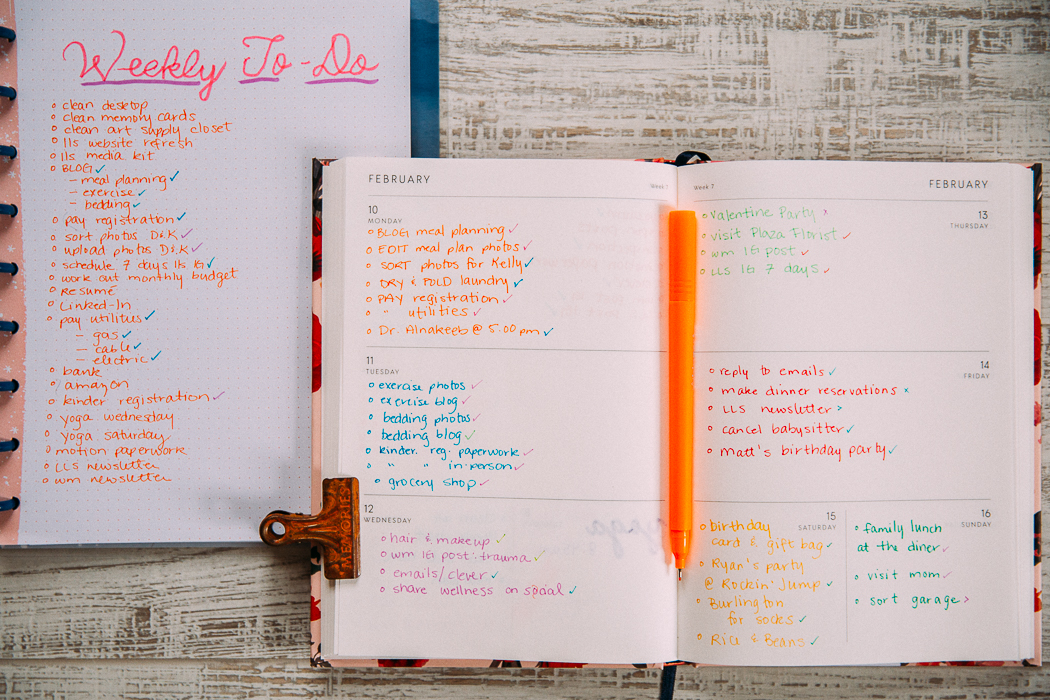 Weekly To-Do
clean desktop
clean memory cards
clean art supply closet
lls website refresh
lls media kit
BLOG ✓
- meal planning ✓
- exercise ✓
- bedding ✓
pay registration ✓
sort photos D&K ✓
upload photos D&K ✓
schedule 7 days lls IG ✓
work out monthly budget
resumé
Linked-In
pay utilities ✓
- gas ✓
- cable ✓
- electric ✓
bank
amazon
kinder registration ✓
yoga wednesday
yoga saturday
motion paperwork
LLS newsletter
wm newsletter
FEBRUARY
Week 7
10
MONDAY
BLOG meal planning ✓
EDIT meal plan photos ✓
SORT photos for Kelly ✓
DRY & FOLD laundry ✓
PAY registration ✓
" utilities ✓
Dr. Alnakeeb @ 5:00 pm ✓
11
TUESDAY
exercise photos ✓
exercise blog ✓
bedding photos ✓
bedding blog ✓
kinder. reg. paperwork ✓
" " in-person ✓
grocery shop ✓
12
WEDNESDAY
hair & makeup ✓
wm IG post: trauma ✓
emails/clever ✓
share wellness on social ✓
Week 7
FEBRUARY
13
THURSDAY
Valentine Party >
visit Plaza Florist ✓
wm IG post ✓
LLS IG 7 days ✓
14
FRIDAY
reply to emails ✓
make dinner reservations x
LLS newsletter >
cancel babysitter ✓
matt's birthday party ✓
15
SATURDAY
birthday
card & gift bag ✓
Ryan's party
@ Rockin' Jump ✓
Burlington
for socks ✓
Rice & Beans ✓
16
SUNDAY
family lunch
at the diner ✓
visit mom ✓
sort garage >